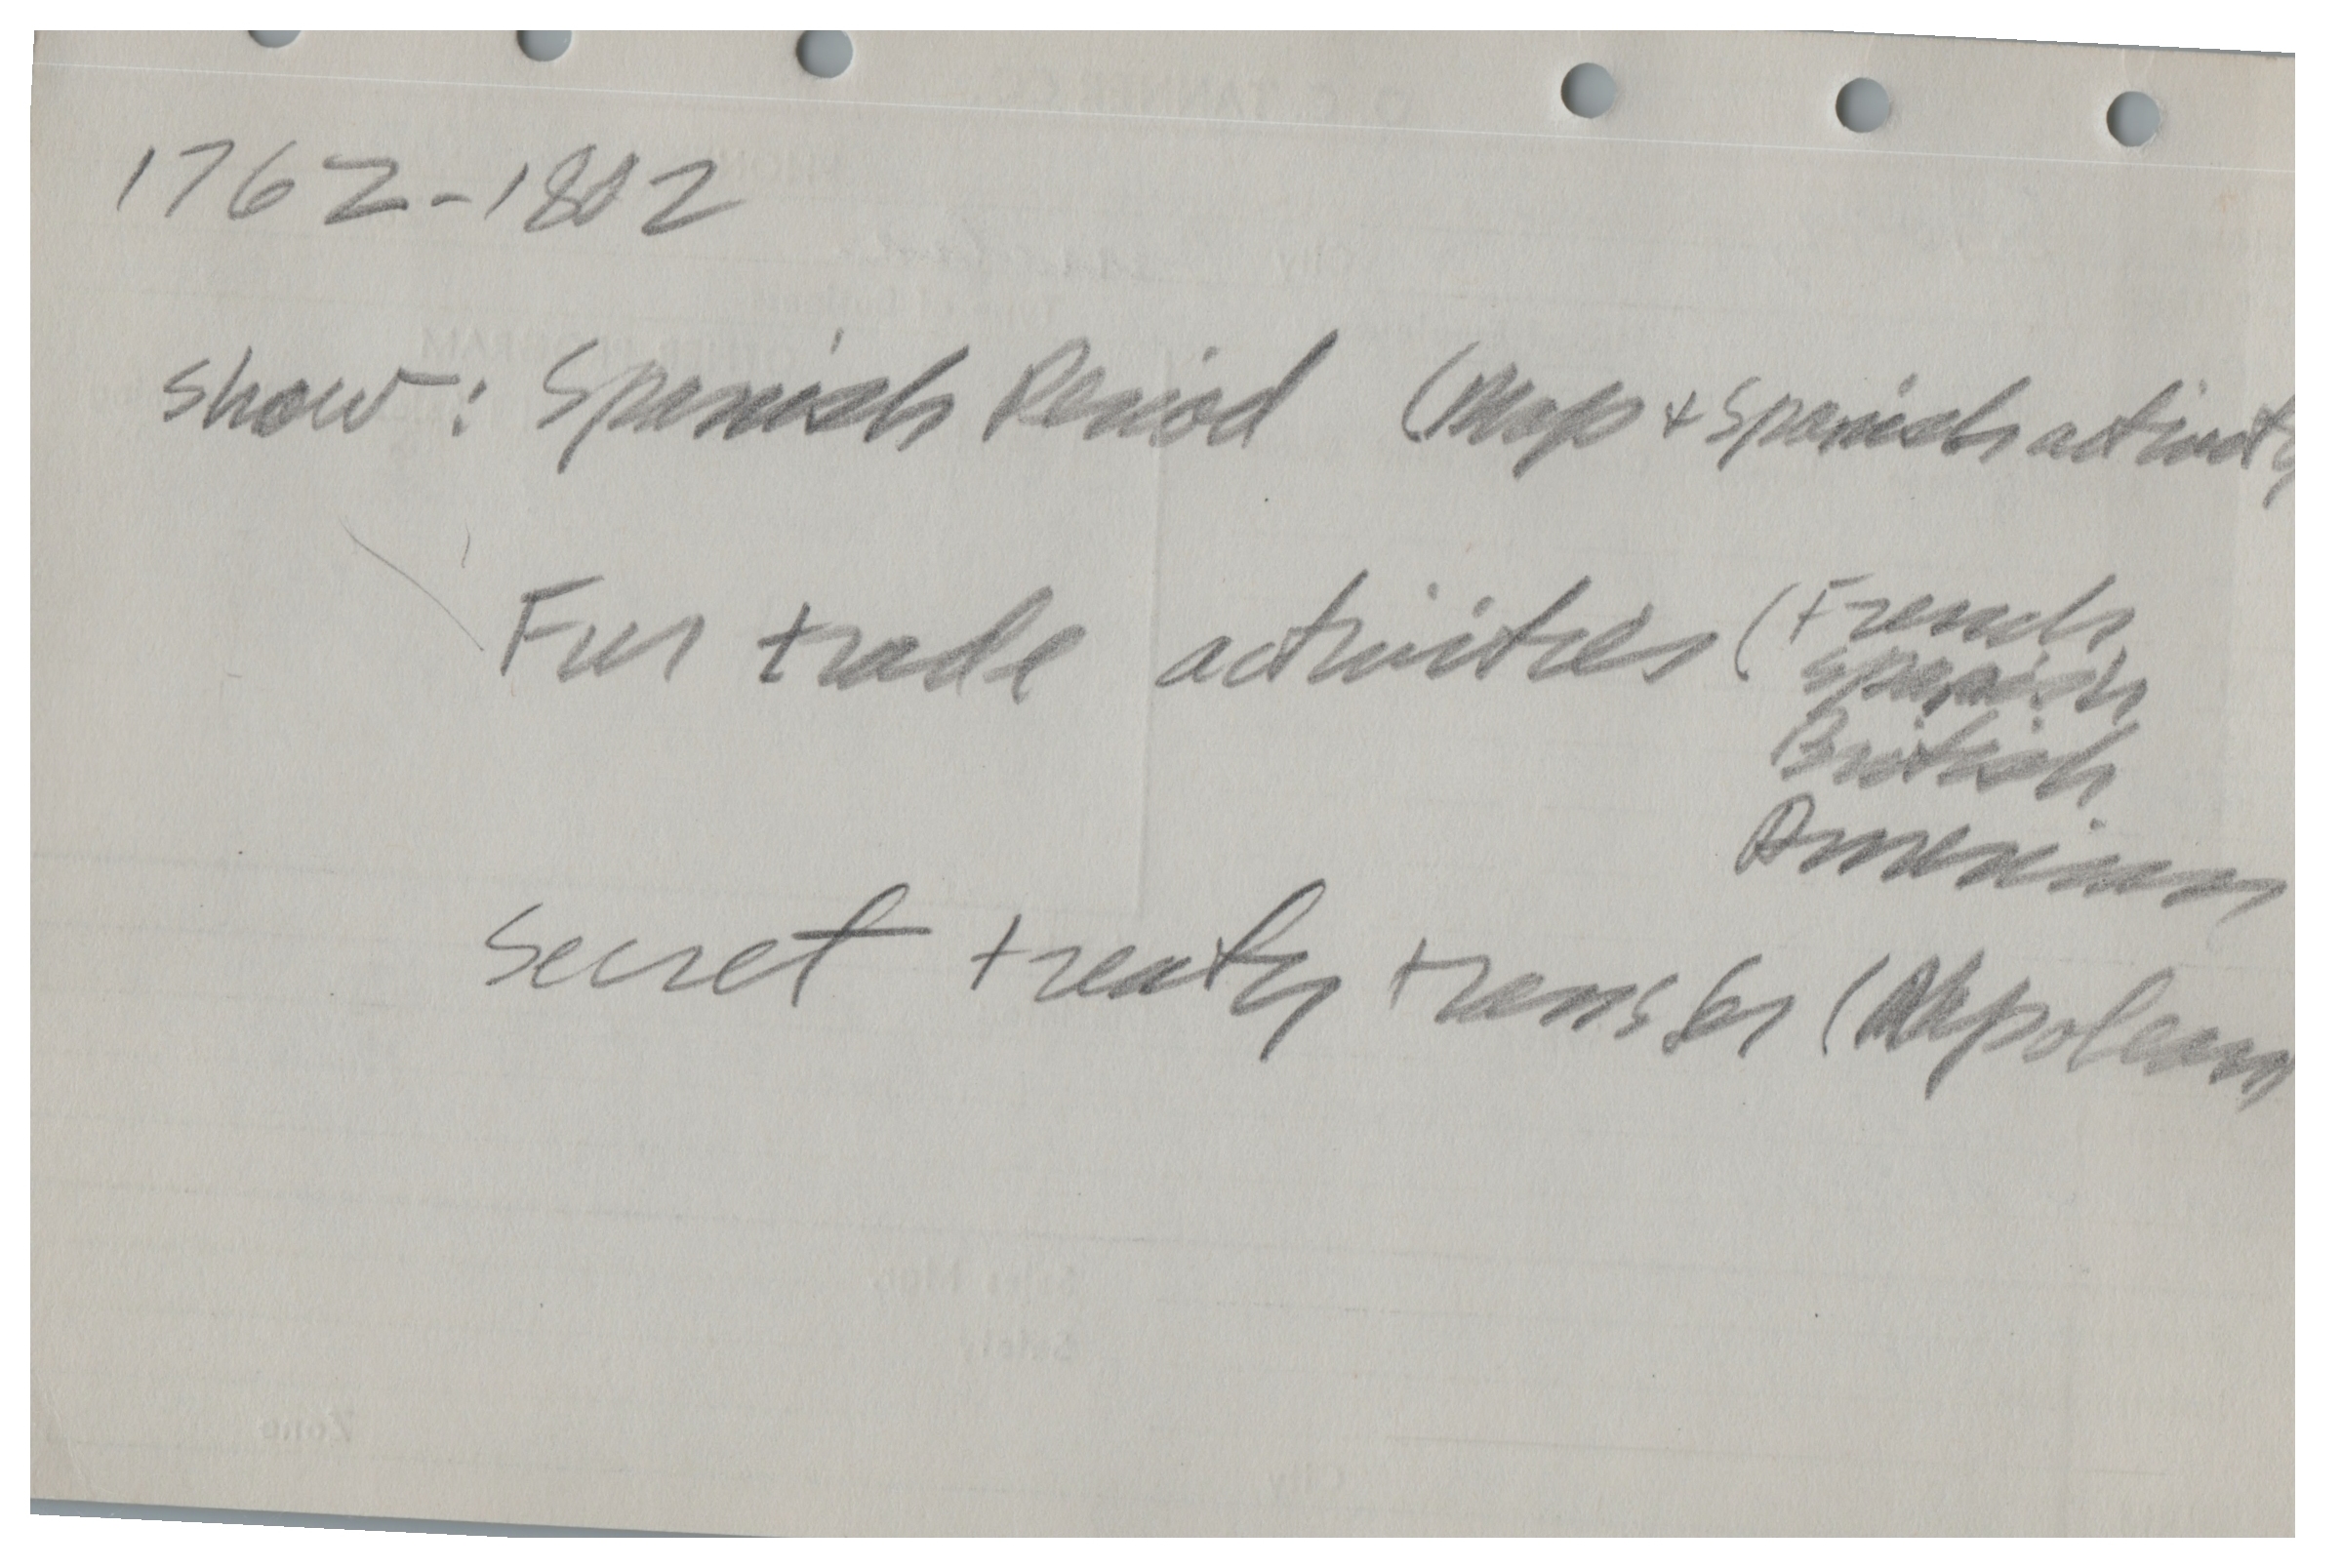 1762-1802
show: Spanish Period (Map + Spanish activity
Fur trade activities (French
Spanish
British
American
Secret treaty transfer (Napoleon